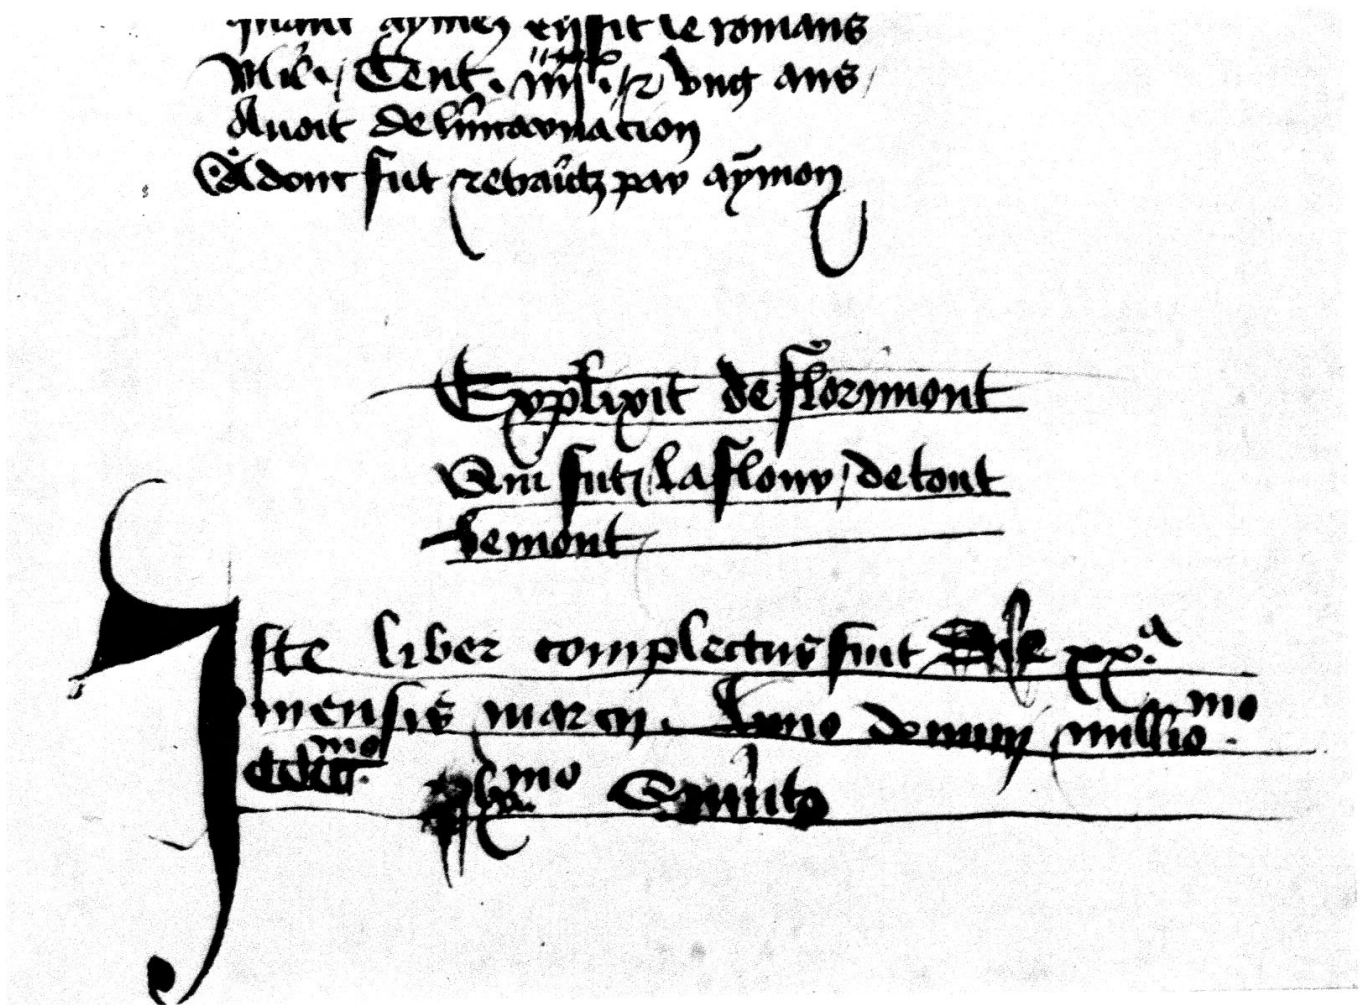 quant aymes en fit le romans
Mil / Cent . iiii . et ung ans /
Avoit de lincarnacion
Adonc fut retraitz par aymon
Explixit de flormont
Qui fut / la flour / de tout
le mont
Iste liber complectus fuit die xx.a
mensis marcii . Anno domini millio.mo
CCCC.mo lx.mo Quinto